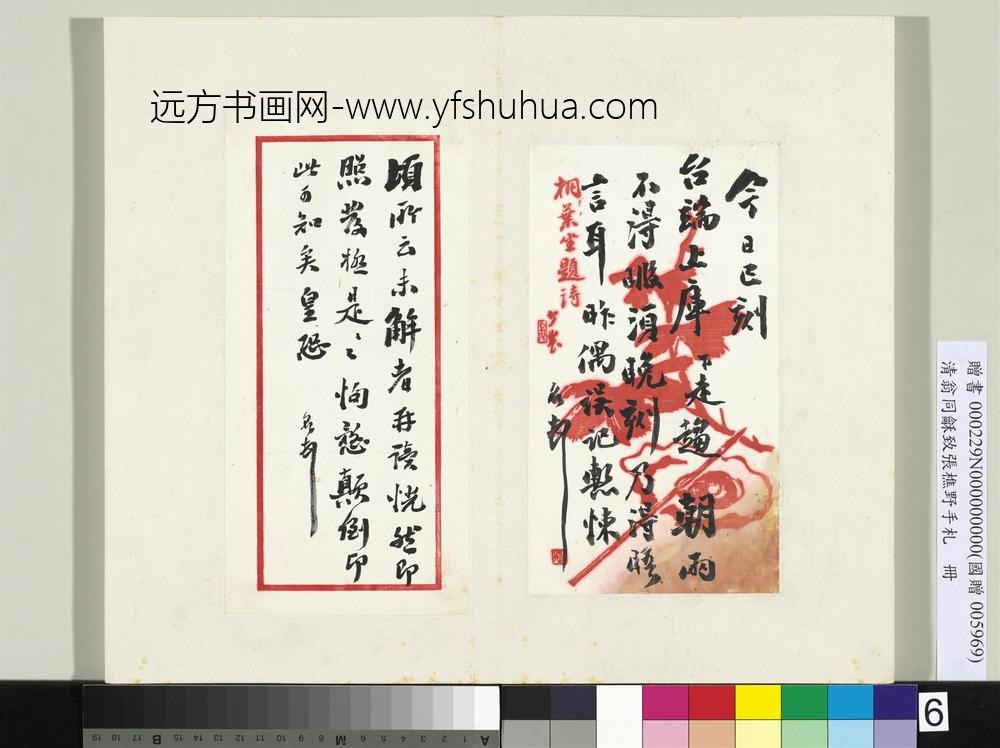 远方书画网-www.yfshuhua.com
今日巳刻
台端上库下走趨朝兩
不得暇須晚刻乃得晤
言耳昨偶误记慙悚
名叩
桐葉坐題詩
頃所云未解者再读恍然即
照發極是〻怐愗颠倒即
此可知矣皇恐
名叩
贈書 000229N000000000(國贈 005969)
清翁同龢致張樵野手札 冊
6
19 18 17 16 15 B 14 13 12 11 10 9 8 M 7 6 5 4 3 2 1 A